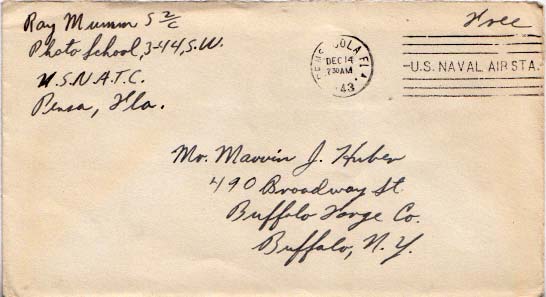 Ray Mumm S 2/c
Photo School, 3-44, S.W.
U.S.N.A.T.C.
Pensa, Fla.
Free
PENSACOLA, FLA.
DEC 14
7 30 AM
43
U.S. NAVAL AIR STA.
Mr. Marvin J. Huber
490 Broadway St.
Buffalo Forge Co.
Buffalo, N.Y.